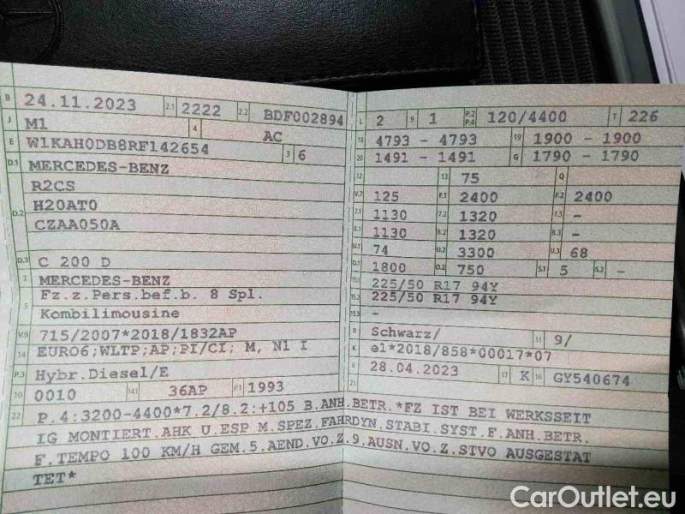 B 24.11.2023 2.1 2222 2.2 BDF002894
J M1 4 AC
E W1KAH0DB8RF142654 3 6
D.1 MERCEDES-BENZ
R2CS
D.2 H20AT0
CZAA050A
D.3 C 200 D
2 MERCEDES-BENZ
5 Fz.z.Pers.bef.b. 8 Spl.
Kombilimousine
V.9 715/2007*2018/1832AP
14 EURO6;WLTP;AP;PI/CI; M, N1 I
P.3 Hybr.Diesel/E
10 0010 14.1 36AP P.1 1993
L 2 9 1 P.2 P.4 120/4400 T 226
18 4793 - 4793 19 1900 - 1900
20 1491 - 1491 G 1790 - 1790
12 13 75 Q
V.7 125 F.1 2400 F.2 2400
7.1 1130 7.2 1320 7.3 -
8.1 1130 8.2 1320 8.3 -
U.1 74 U.2 3300 U.3 68
O.1 1800 O.2 750 S.1 5 S.2 -
15.1 225/50 R17 94Y
15.2 225/50 R17 94Y
15.3 -
R Schwarz/ 11 9/
K e1*2018/858*00017*07
6 28.04.2023 17 K 16 GY540674
21
22 P.4:3200-4400*7.2/8.2:+105 B.ANH.BETR.*FZ IST BEI WERKSSEIT
IG MONTIERT.AHK U.ESP M.SPEZ.FAHRDYN.STABI.SYST.F.ANH.BETR.
F.TEMPO 100 KM/H GEM.5.AEND.VO.Z.9.AUSN.VO.Z.STVO AUSGESTAT
TET*
CarOutlet.eu